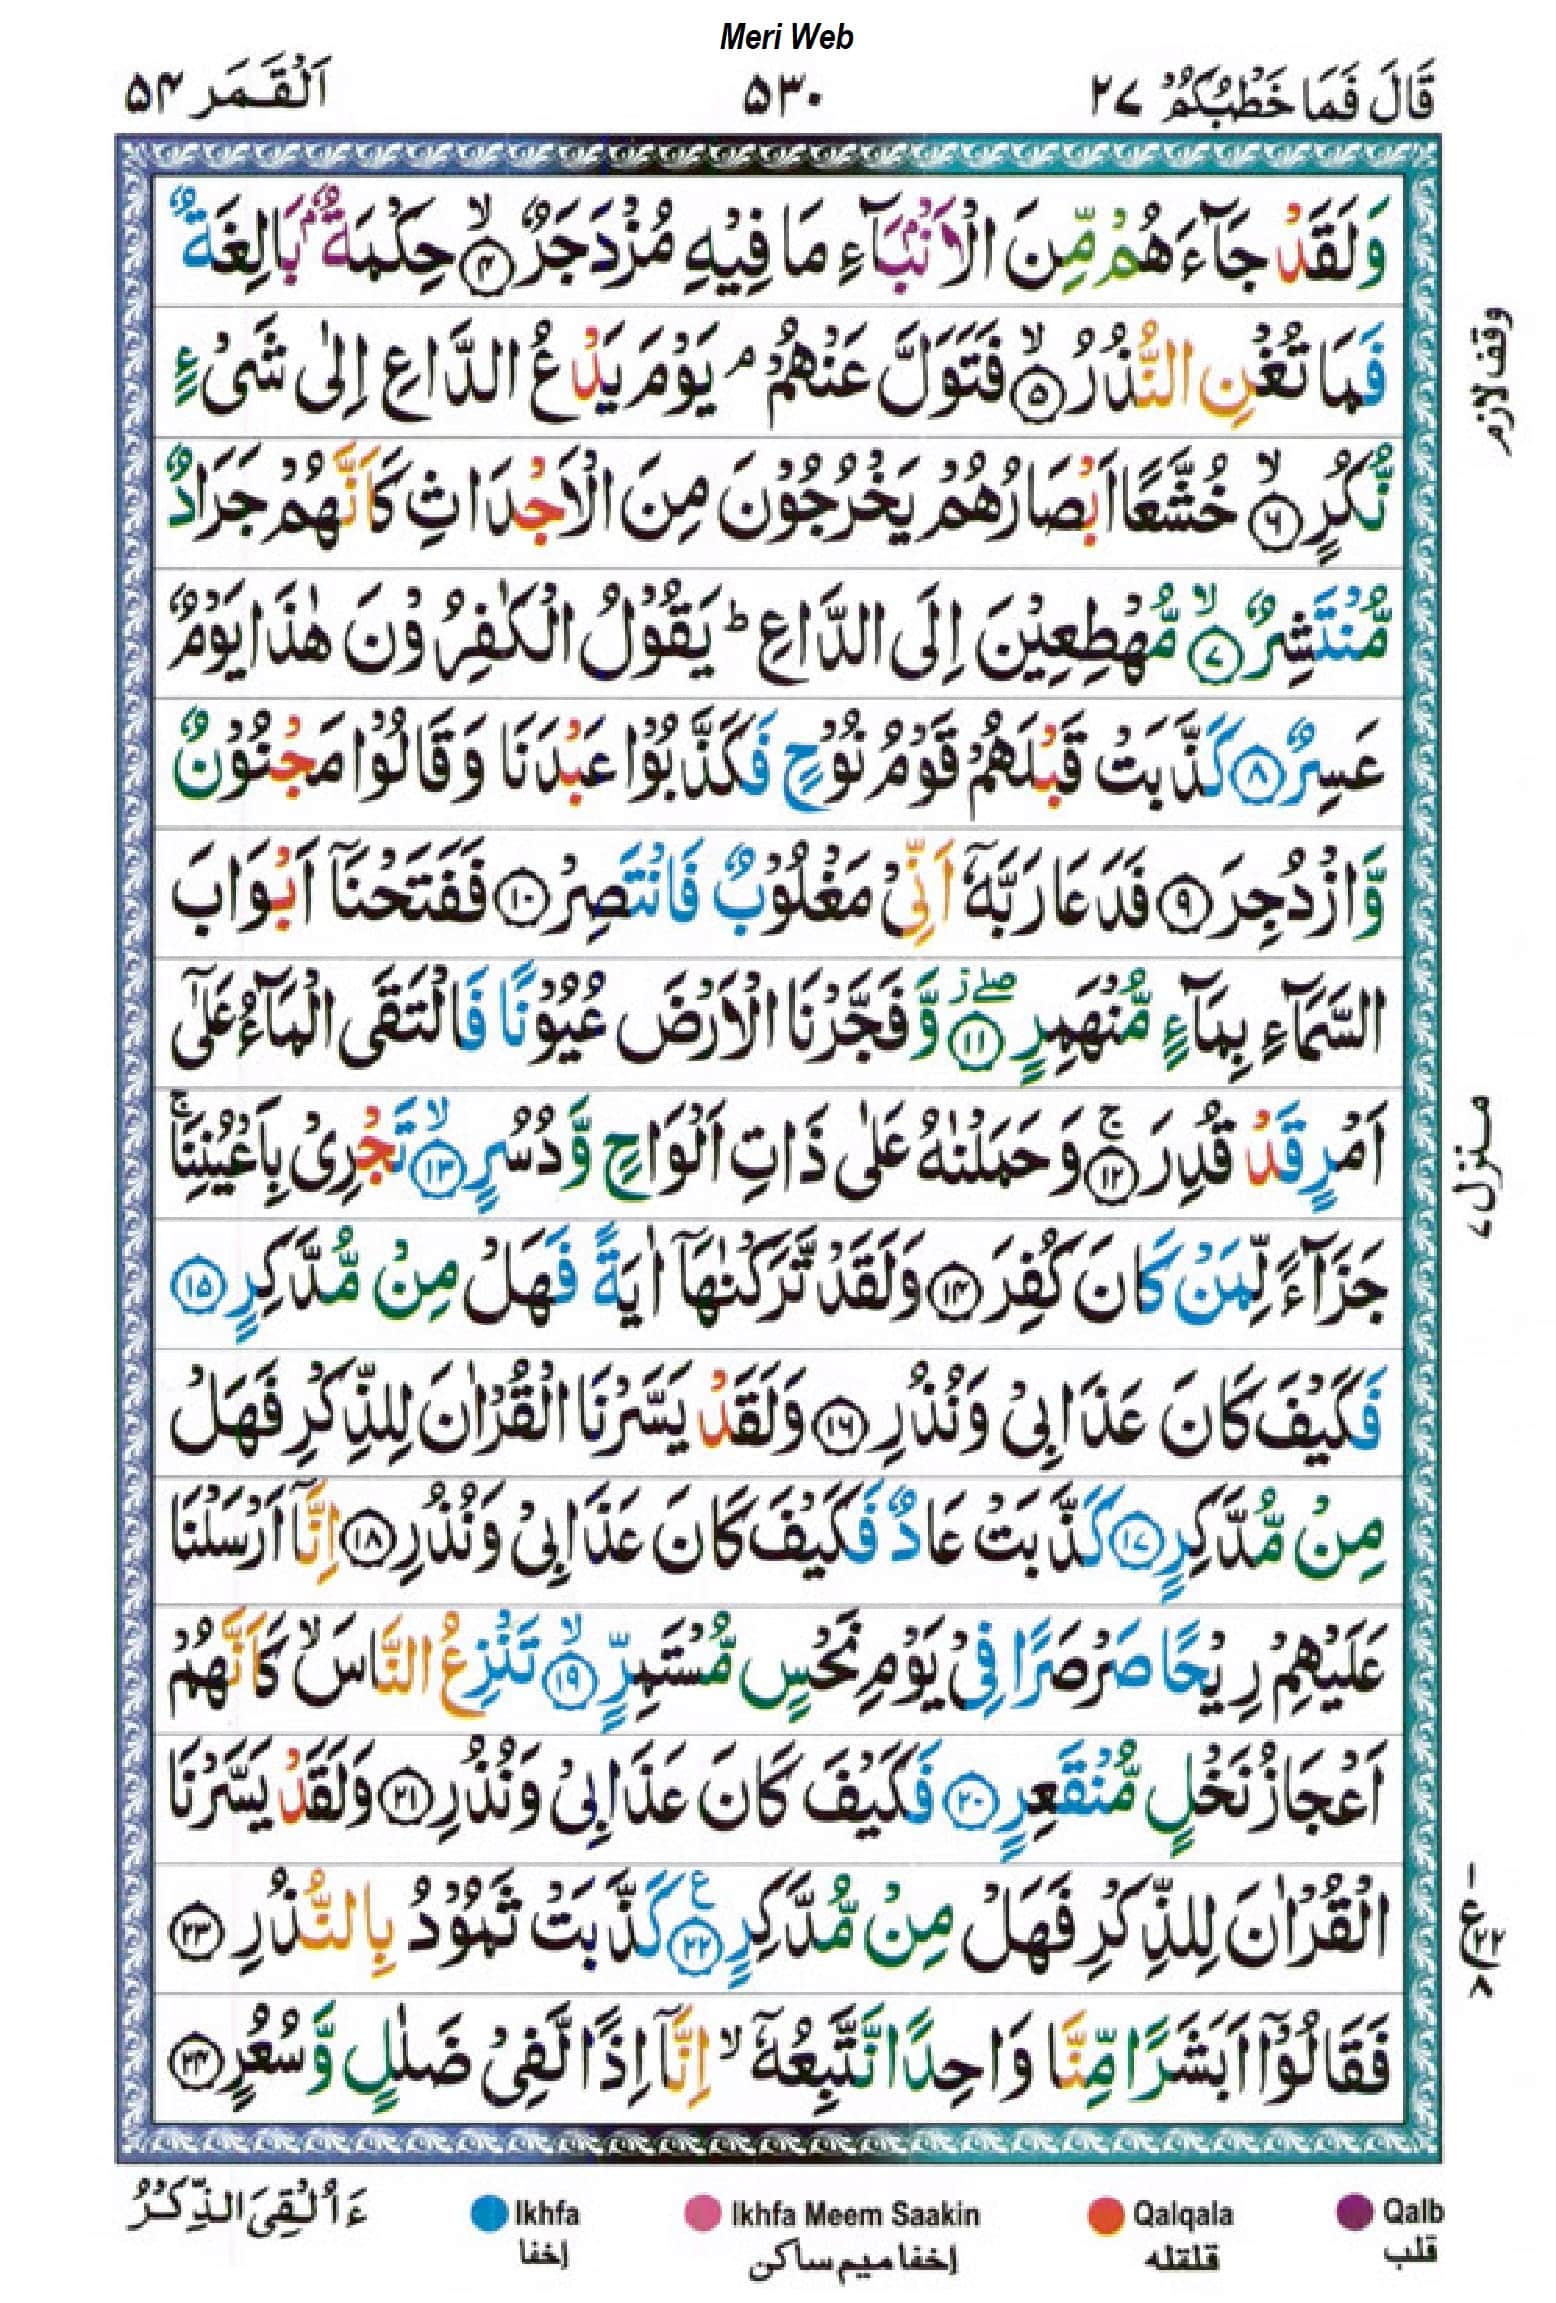 Meri Web
قَالَ فَمَا خَطْبُكُمْ ۲۷ ۵۳۰ اَلْقَـمَـر ۵۴
وَلَقَدْ جَآءَهُمْ مِّنَ الْاَنْۢبَآءِ مَا فِيْهِ مُزْدَجَرٌ ۙ﴿۴﴾ حِكْمَةٌۢ بَالِغَةٌ
فَمَا تُغْنِ النُّذُرُ ۙ﴿۵﴾ فَتَوَلَّ عَنْهُمْ ۘ يَوْمَ يَدْعُ الدَّاعِ اِلٰى شَىْءٍ
نُّكُرٍ ۙ﴿۶﴾ خُشَّعًا اَبْصَارُهُمْ يَخْرُجُوْنَ مِنَ الْاَجْدَاثِ كَاَنَّهُمْ جَرَادٌ
مُّنْتَشِرٌ ۙ﴿۷﴾ مُّهْطِعِيْنَ اِلَى الدَّاعِ ؕ يَقُوْلُ الْكٰفِرُوْنَ هٰذَا يَوْمٌ
عَسِرٌ ﴿۸﴾ كَذَّبَتْ قَبْلَهُمْ قَوْمُ نُوْحٍ فَكَذَّبُوْا عَبْدَنَا وَقَالُوْا مَجْنُوْنٌ
وَّازْدُجِرَ ﴿۹﴾ فَدَعَا رَبَّهٗۤ اَنِّىْ مَغْلُوْبٌ فَانْتَصِرْ ﴿۱۰﴾ فَفَتَحْنَاۤ اَبْوَابَ
السَّمَآءِ بِمَآءٍ مُّنْهَمِرٍ ۖز ﴿۱۱﴾ وَّفَجَّرْنَا الْاَرْضَ عُيُوْنًا فَالْتَقَى الْمَآءُ عَلٰٓى
اَمْرٍ قَدْ قُدِرَ ۚ﴿۱۲﴾ وَحَمَلْنٰهُ عَلٰى ذَاتِ اَلْوَاحٍ وَّدُسُرٍ ۙ﴿۱۳﴾ تَجْرِىْ بِاَعْيُنِنَا ۚ
جَزَآءً لِّمَنْ كَانَ كُفِرَ ﴿۱۴﴾ وَلَقَدْ تَّرَكْنٰهَاۤ اٰيَةً فَهَلْ مِنْ مُّدَّكِرٍ ﴿۱۵﴾
فَكَيْفَ كَانَ عَذَابِىْ وَنُذُرِ ﴿۱۶﴾ وَلَقَدْ يَسَّرْنَا الْقُرْاٰنَ لِلذِّكْرِ فَهَلْ
مِنْ مُّدَّكِرٍ ﴿۱۷﴾ كَذَّبَتْ عَادٌ فَكَيْفَ كَانَ عَذَابِىْ وَنُذُرِ ﴿۱۸﴾ اِنَّاۤ اَرْسَلْنَا
عَلَيْهِمْ رِيْحًا صَرْصَرًا فِىْ يَوْمِ نَحْسٍ مُّسْتَمِرٍّ ۙ﴿۱۹﴾ تَنْزِعُ النَّاسَ ۙ كَاَنَّهُمْ
اَعْجَازُ نَخْلٍ مُّنْقَعِرٍ ﴿۲۰﴾ فَكَيْفَ كَانَ عَذَابِىْ وَنُذُرِ ﴿۲۱﴾ وَلَقَدْ يَسَّرْنَا
الْقُرْاٰنَ لِلذِّكْرِ فَهَلْ مِنْ مُّدَّكِرٍ ﴿۲۲﴾ ع كَذَّبَتْ ثَمُوْدُ بِالنُّذُرِ ﴿۲۳﴾
فَقَالُوْۤا اَبَشَرًا مِّنَّا وَاحِدًا نَّتَّبِعُهٗۤ ۙ اِنَّاۤ اِذًا لَّفِىْ ضَلٰلٍ وَّسُعُرٍ ﴿۲۴﴾
وقف لازم
منزل ۷
ع ۲۲ ۸
ءَاُلْقِىَ الذِّكْرُ
Ikhfa Ikhfa Meem Saakin Qalqala Qalb
إخفا إخفا ميم ساكن قلقله قلب